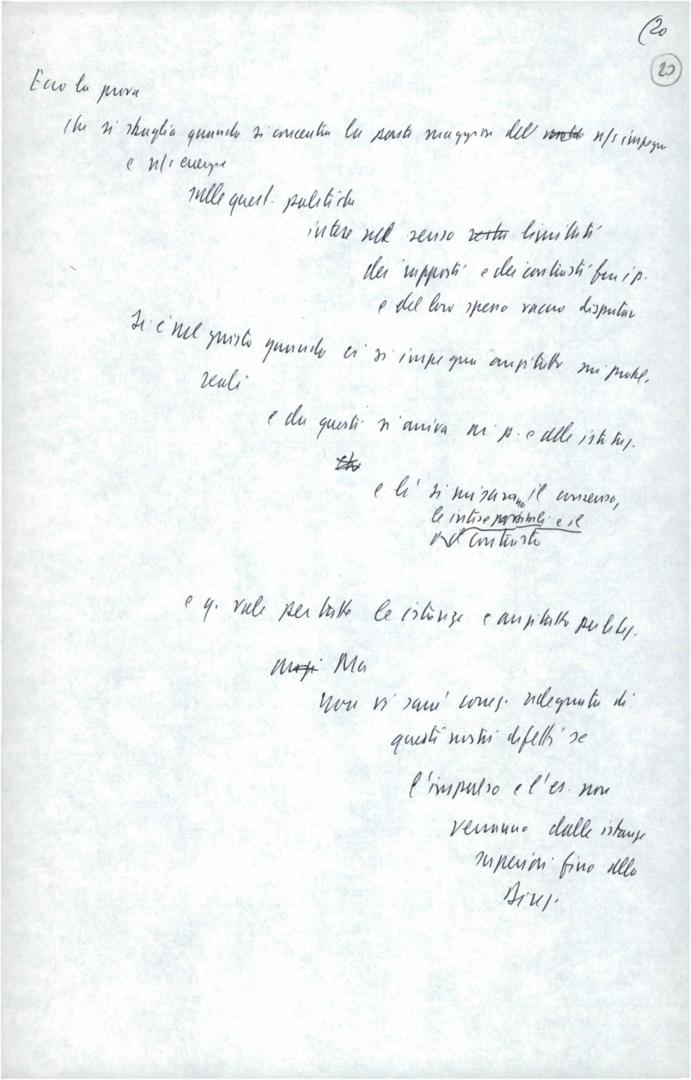 (20
20
Ecco la prova
che si sbaglia quando si concentra la parte maggior del n/s impegno
e n/s energie
sulle quest. politiche
intese nel senso limitati
dei rapporti e dei contrasti fra i p.
e del loro spesso vacuo disputar
Si è nel giusto quando ci si impegna anzitutto sui probl.
reali
e da questi si arriva ai p. e alle istituz.
e lì si misurano il consenso,
le intese e il
contrasto
e q. vale per tutte le istanze e anzitutto per le
Ma
non vi sarà adeguata di
questi nostri difetti se
l'impulso e l'es. non
verranno dalle istanze
superiori fino alla
Direz.